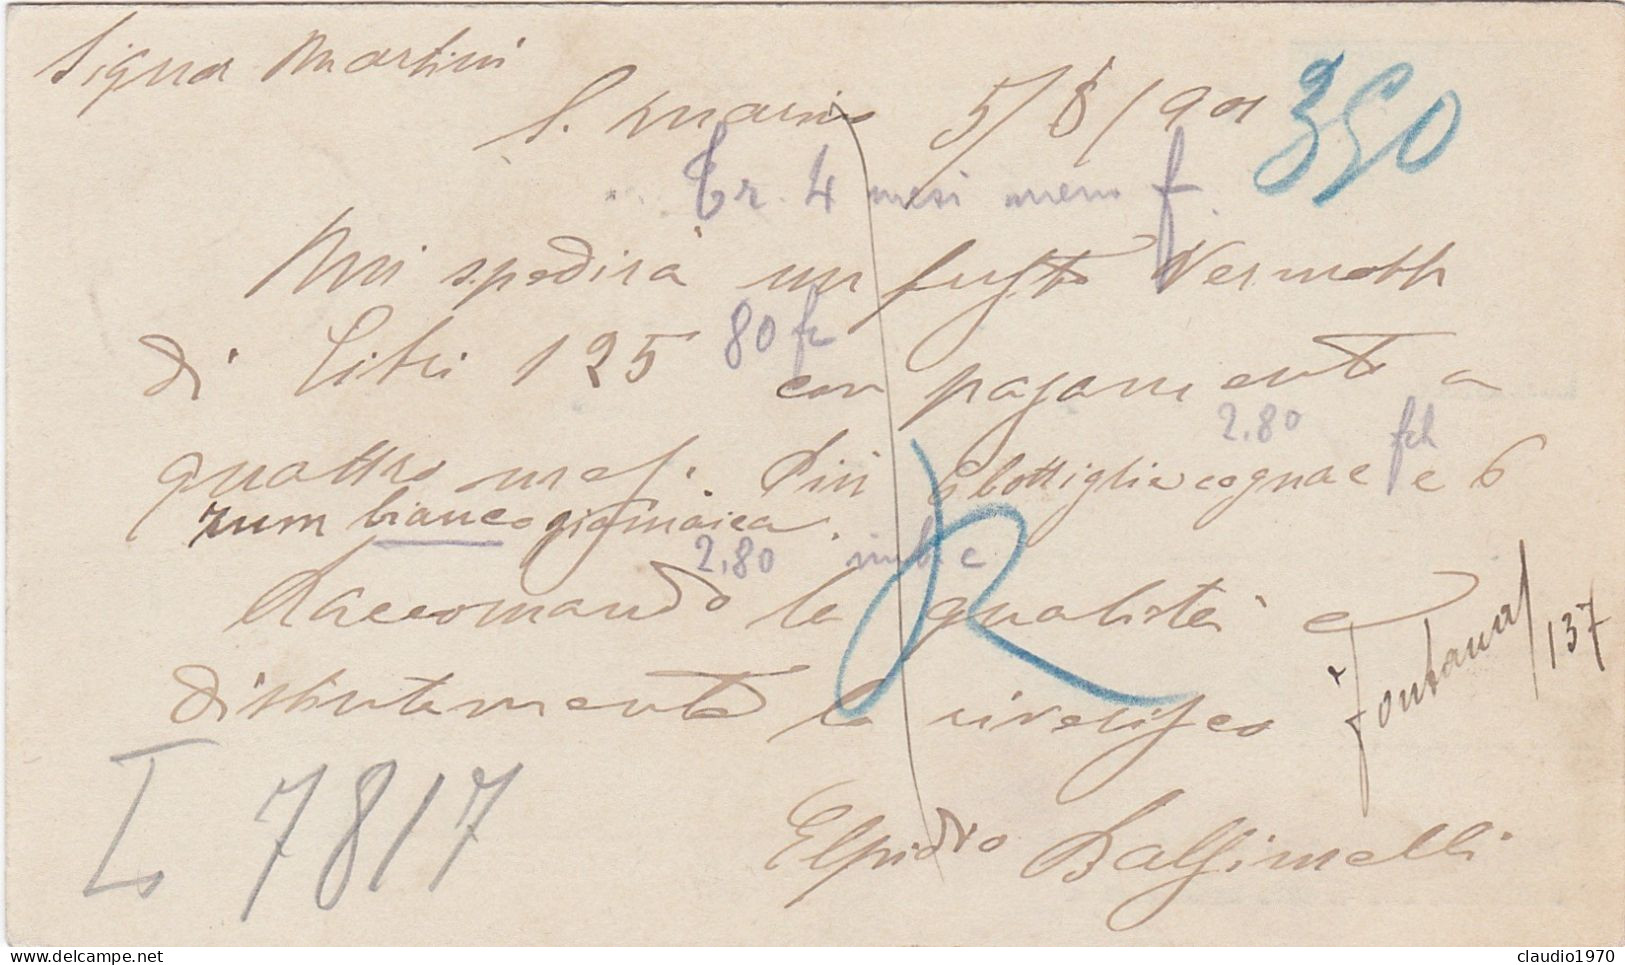 Signor Martini
S. Marino 5/8/901
350
Tr. 4 mesi meno f.
Mi spedirà un fusto Vermotth
di Litri 125 80 fr con pagamento a
2.80 fch
quattro mesi. Più 6 bottiglie cognac e 6
rum bianco giamaica.
2.80 imb. c
Raccomando la qualità e
distintamente la riverisco
Fontana
137
Elpidio Balsimelli
L 7817
www.delcampe.net
claudio1970